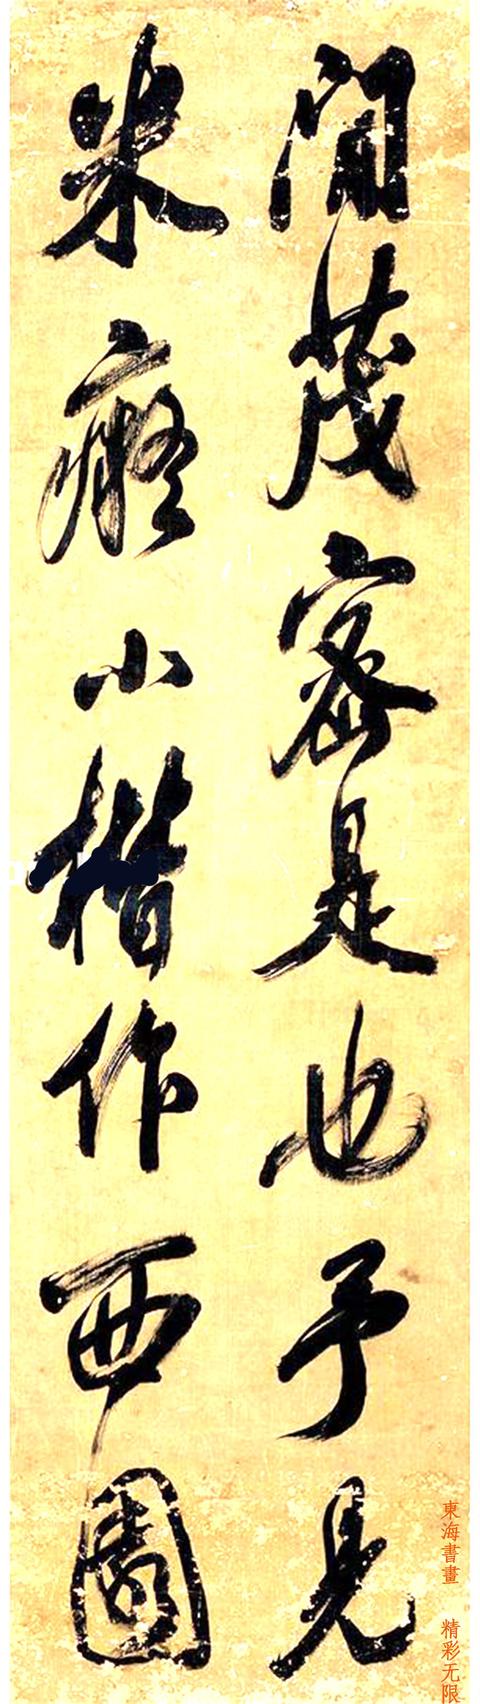 閒茂密是也予見
米癡小楷作西園
東海書畫 精彩无限